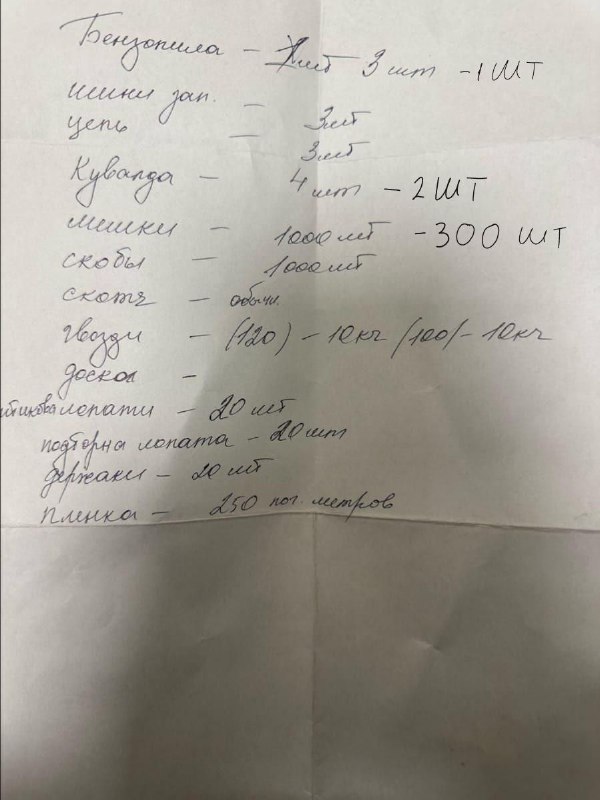 Бензопила - 1шт 3 шт - 1 ШТ
шини зап. - 3шт
цепь - 3шт
Кувалда - 4 шт - 2 ШТ
мешки - 1000 шт - 300 ШТ
скобы - 1000 шт
скотч - обычн.
гвозди - (120) - 10кг (100) - 10кг
доска -
лопати - 20 шт
подборна лопата - 20 шт
держаки - 20 шт
пленка - 250 пог. метров